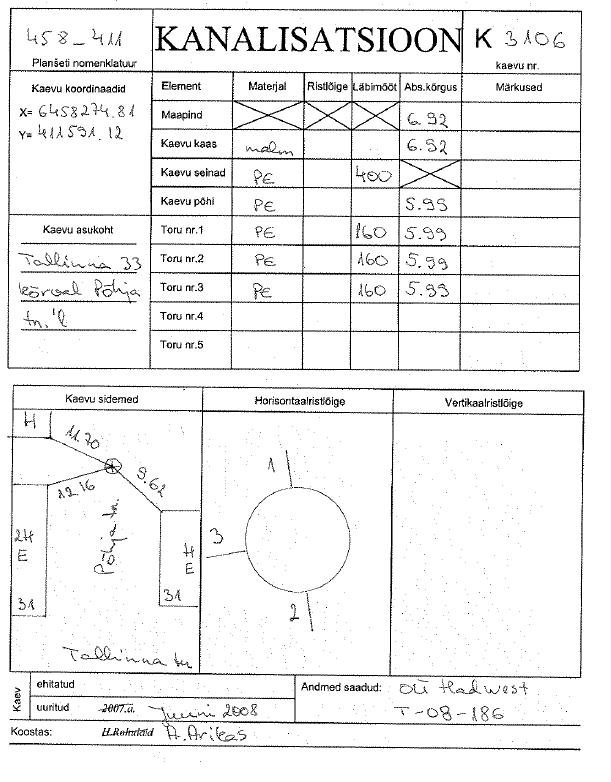 458-411
Planšeti nomenklatuur
KANALISATSIOON
K 3106
kaevu nr.
Kaevu koordinaadid
X= 6458274.81
Y= 411591.12
Kaevu asukoht
Tallinna 33
kõrval Põhja
tn.'l
Element Materjal Ristlõige Läbimõõt Abs.kõrgus Märkused
Maapind 6.92
Kaevu kaas malm 6.92
Kaevu seinad PE 400
Kaevu põhi PE 5.99
Toru nr.1 PE 160 5.99
Toru nr.2 PE 160 5.99
Toru nr.3 PE 160 5.99
Toru nr.4
Toru nr.5
Kaevu sidemed
H
11.70
9.62
12.16
2H
E
31
Põhja tn.
H
E
31
Tallinna tn
Horisontaalristlõige
1
3
2
Vertikaalristlõige
Kaev
ehitatud
uuritud 2007.a. Juuni 2008
Andmed saadud: OÜ Hadwest
T-08-186
Koostas: A.Arikas